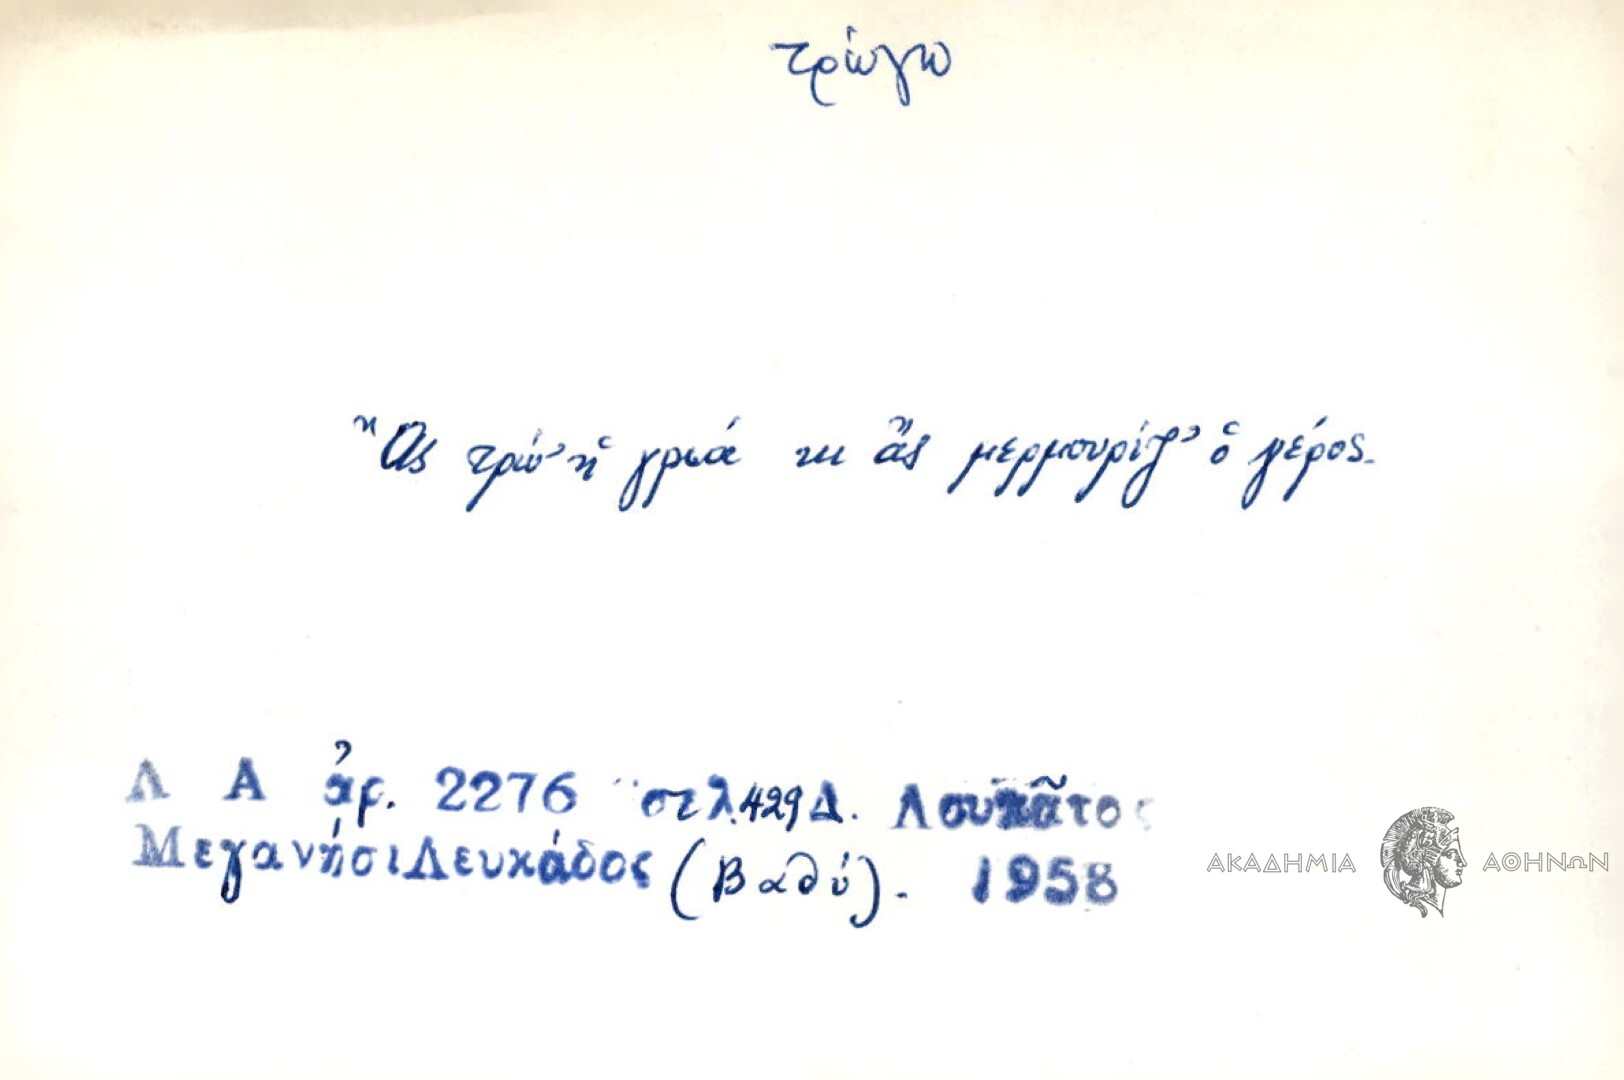 τρώγω
Ἂς τρώ' ἡ γριά κι ἂς μερμουρίζ' ὁ γέρος.
Λ Α ἀρ. 2276 σελ. 429 Δ. Λουκᾶτος
Μεγανήσι Λευκάδος (Βαθύ). 1958
ΑΚΑΔΗΜΙΑ ΑΘΗΝΩΝ